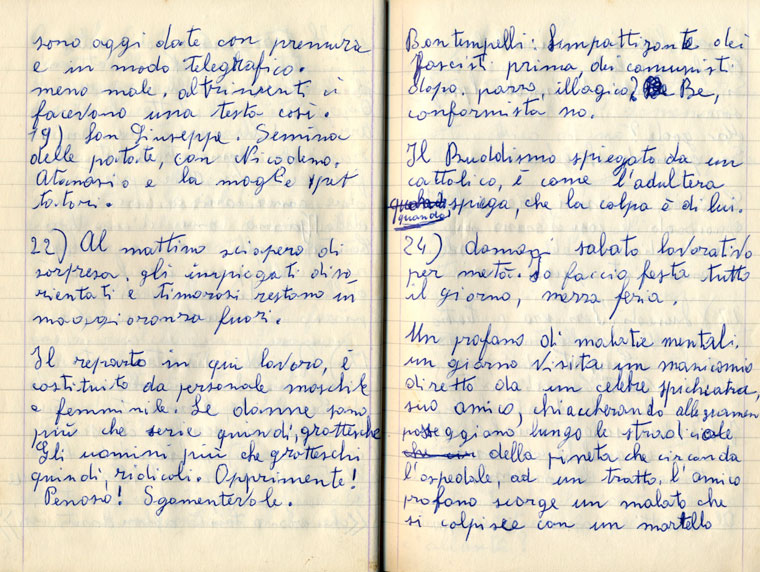 sono aggi date con premura
e in modo telegrafico.
meno male. altrimenti ci
facevano una testa così.
19) San Giuseppe. Semina
delle patate, con Nicodemo.
Atanasio e la moglie spet
tatori.
22) Al mattino sciopero di
sorpresa. gli impiegati diso
rientati e timorosi restano in
maggioranza fuori.
Il reparto in cui lavoro, è
costituito da personale maschile
e femminile. Le donne sono,
più che serie quindi, grottesche
Gli uomini più che grotteschi
quindi, ridicoli. Opprimente!
Penoso! Sgomentevole.
Bontempelli: Simpattizante dei
fascisti prima, dei comunisti
dopo, parra, illogico? Be,
conformista no.
Il Buoddismo spiegato da un
cattolico, è come l'adultera
quando, spiega, che la colpa è di lui.
24) domaggi sabato lavorativo
per metà. Io faccio festa tutto
il giorno, mezza feria.
Un profano di malatie mentali.
un giorno visita un manicomio
diretto da un celebre spichiatra,
suo amico, chiaccherando allegramen
passeggiano lungo le stradiciole
della pineta che circonda
l'ospedale, ad un tratto, l'amico
profano scorge un malato che
si colpisce con un martello